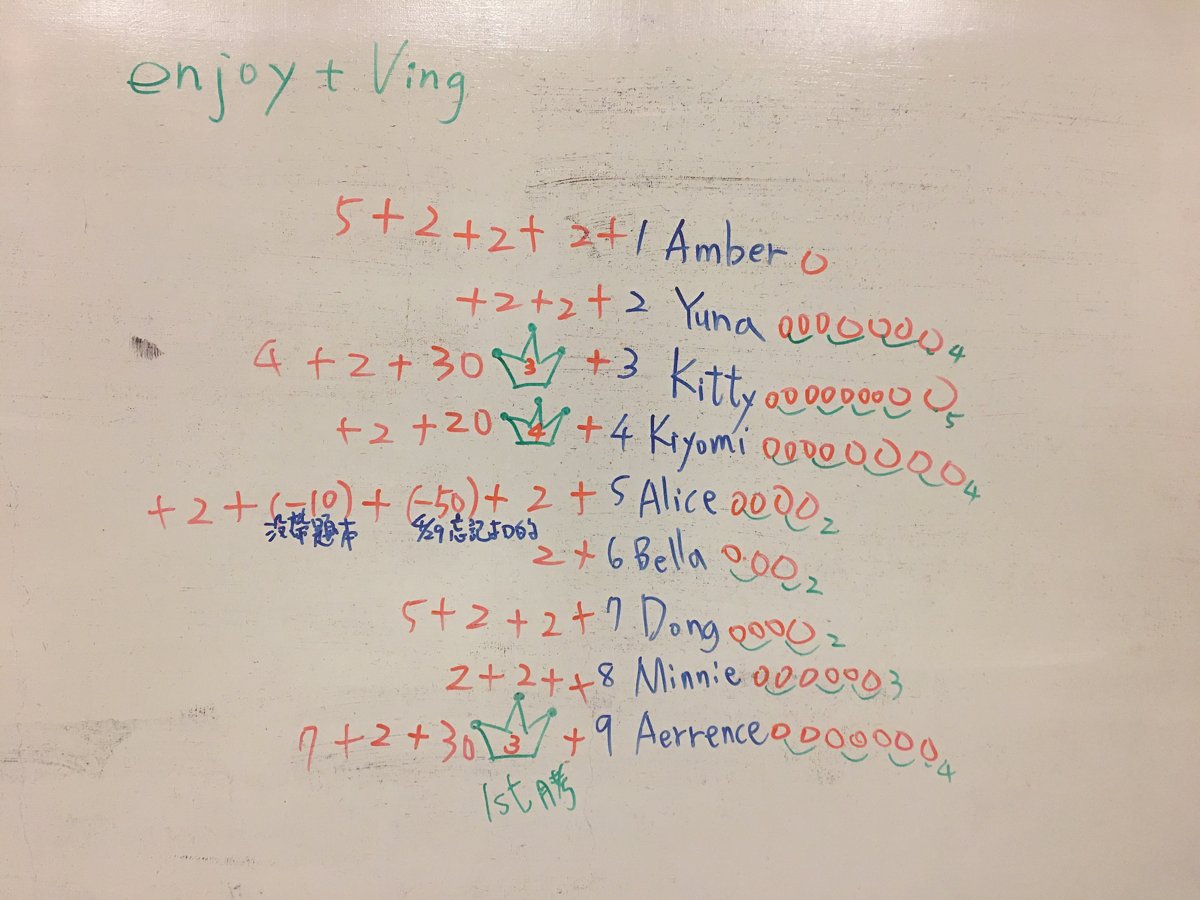 enjoy + Ving
5 + 2 + 2 + 2 + 1 Amber O
+ 2 + 2 + 2 Yuna OOOOOOO 4
4 + 2 + 30 3 + 3 Kitty OOOOOOOOO 5
+ 2 + 20 4 + 4 Kiyomi OOOOOOOO 4
+ 2 + (-10) + (-50) + 2 + 5 Alice OOOO 2
沒帶題本 4/29忘記
2 + 6 Bella OOO 2
5 + 2 + 2 + 7 Dong OOOO 2
2 + 2 + + 8 Minnie OOOOOO 3
7 + 2 + 30 3 + 9 Aerrence OOOOOOO 4
1st 月考